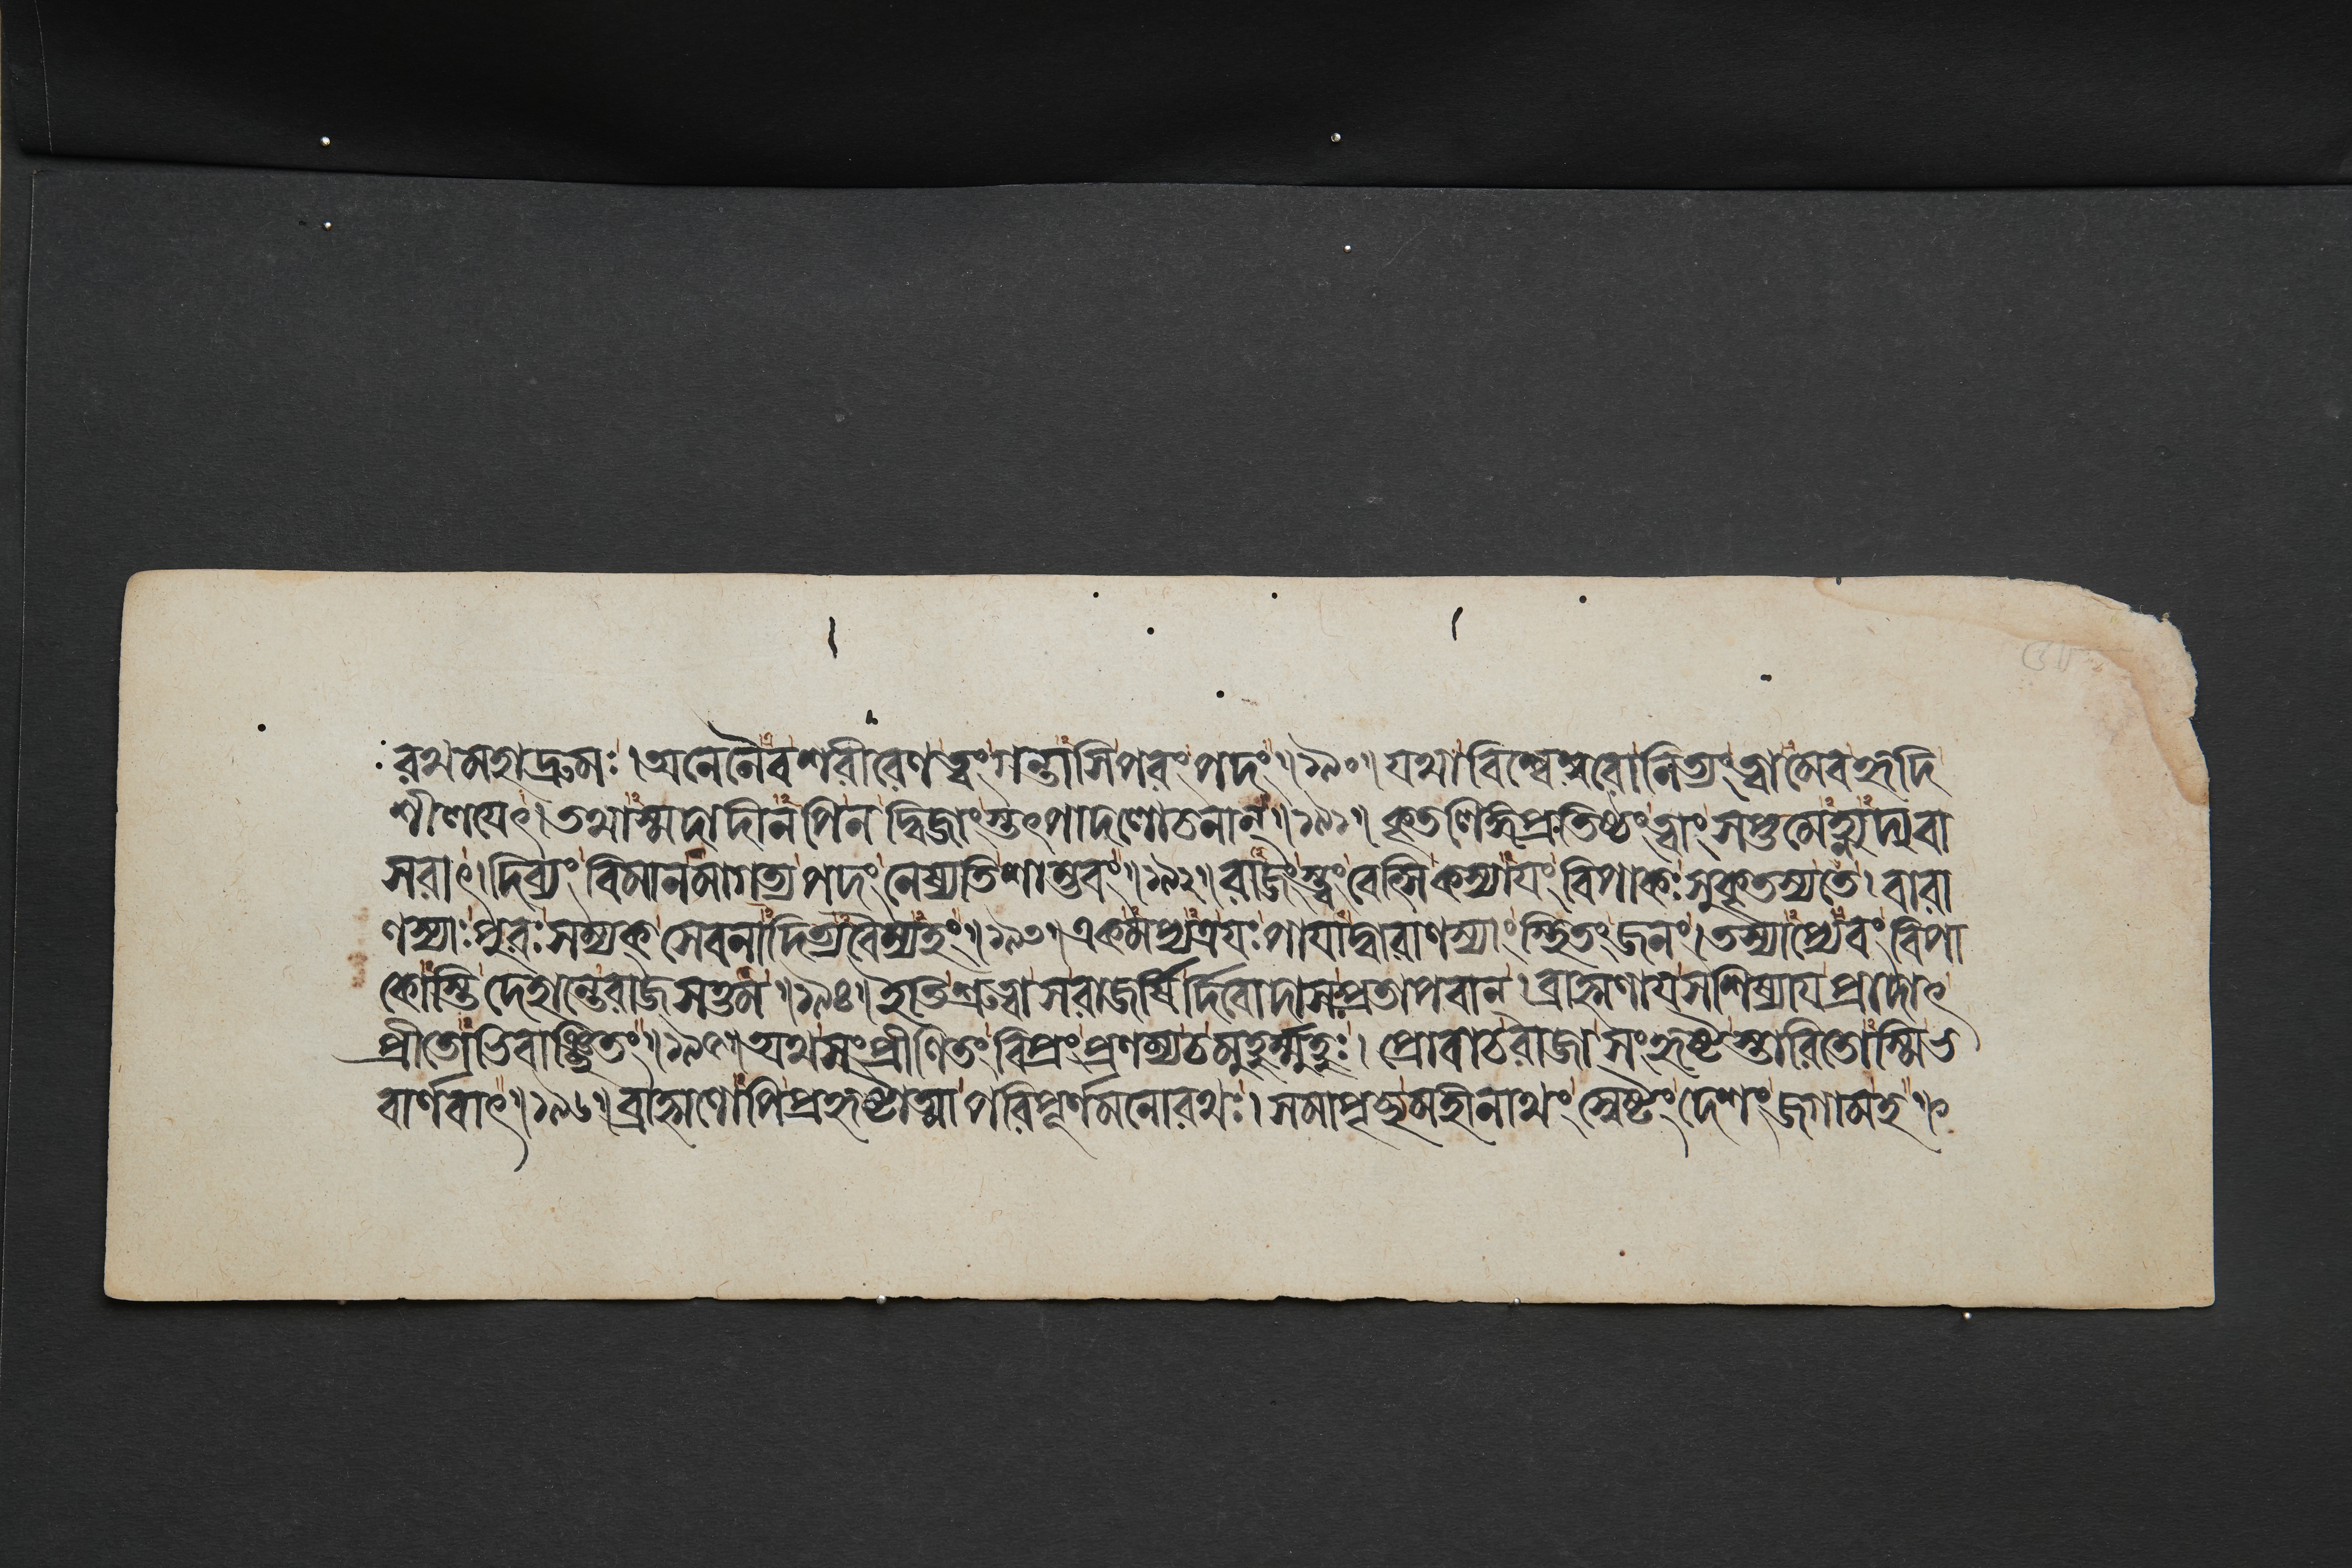 রথমহাদ্রুমঃ। অনেনৈব শরীরেণ ত্বং গন্তাসি পরং পদং॥১৯০॥ যথা বিশ্বেশ্বরো নিত্যং ত্বামেব হৃদি
শীলয়েৎ। তথাস্মদাদীনপি ন দ্বিজাংস্তৎপাদলোচনান্॥১৯১॥ কৃতলিঙ্গপ্রতিষ্ঠং ত্বাং সপ্তমেহ্ন্যদ্যবা
সরাৎ। দিব্যং বিমানমাগত্য পদং নেষ্যতি শাম্ভবং॥১৯২॥ রাজংস্ত্বং বেৎসি কস্যায়ং বিপাকঃ সুকৃতস্য তে। বারা
ণস্যাঃ পুরঃ সম্যক্ সেবনাদিত্যবৈম্যহং॥১৯৩॥ একমপ্যত্র যঃ পায়াদ্বারাণস্যাং স্থিতং জনং। তস্যাপ্যেবং বিপা
কোস্তি দেহান্তে রাজসত্তম॥১৯৪॥ ইতি শ্রুত্বা স রাজর্ষির্দিবোদাসঃ প্রতাপবান্। ব্রাহ্মণায় সশিষ্যায় প্রাদাৎ
প্রীতোভিবাঞ্ছিতং॥১৯৫॥ অথ সংপ্রীণিতং বিপ্রং প্রণম্য চ মুহুর্ম্মুহুঃ। প্রোবাচ রাজা সংহৃষ্টস্তারিতোস্মি ভ
বার্ণবাৎ॥১৯৬॥ ব্রাহ্মণোপি প্রহৃষ্টাত্মা পরিপূর্ণমনোরথঃ। সমাপৃচ্ছ্য মহীনাথং স্বেষ্টং দেশং জগাম হ॥